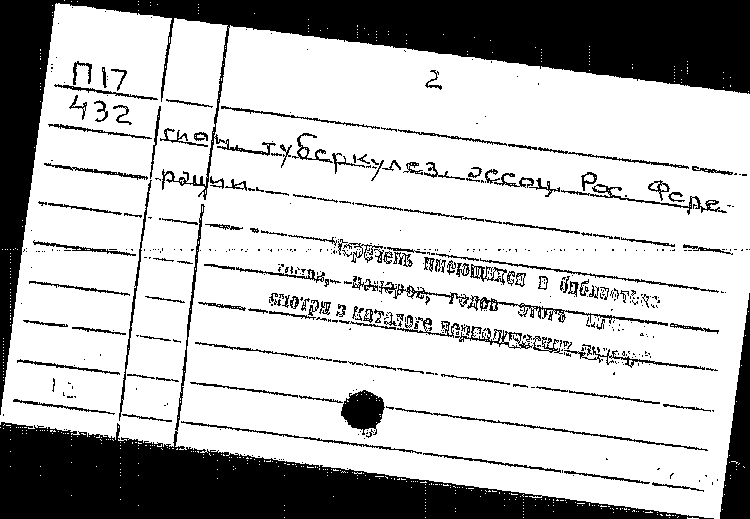 П17
432
2
гион. туберкулез. ассоц. Рос. Феде-
рации.
Перечень имеющихся в библиотеке
томов, номеров, годов этого
смотри в каталоге периодических